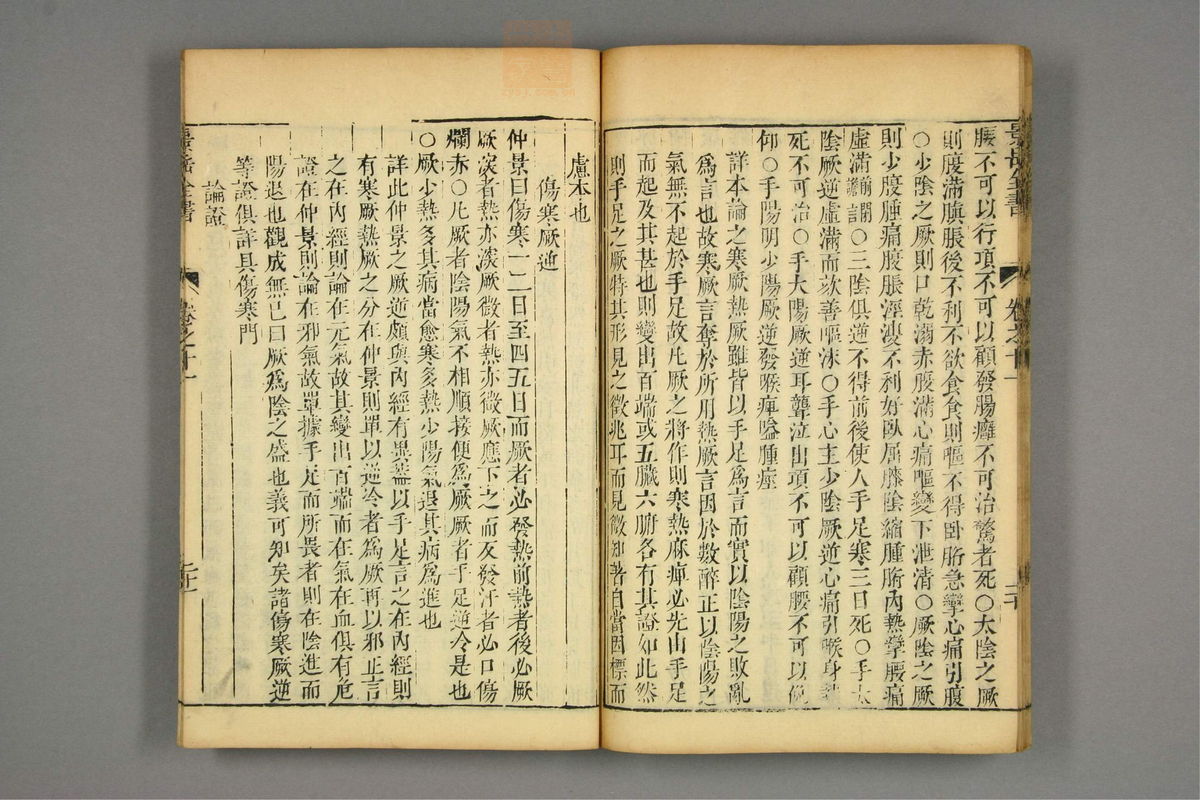 腰不可以行項不可以顧發腸癰不可治驚者死○太陰之厥
則腹滿䐜脹後不利不欲食食則嘔不得臥䯒急攣心痛引腹
○少陰之厥則口乾溺赤腹滿心痛嘔變下泄清○厥陰之厥
則少腹腫痛腹脹涇溲不利好臥屈膝陰縮腫䯒內熱攣腰痛
虛滿前閉譫言○三陰俱逆不得前後使人手足寒三日死○手太
陰厥逆虛滿而欬善嘔沫○手心主少陰厥逆心痛引喉身熱
死不可治○手太陽厥逆耳聾泣出項不可以顧腰不可以俛
仰○手陽明少陽厥逆發喉痺嗌腫痓
詳本論之寒厥熱厥雖皆以手足爲言而實以陰陽之敗亂
爲言也故寒厥言奪於所用熱厥言因於數醉正以陰陽之
氣無不起於手足故凡厥之將作則寒熱麻痺必先由手足
而起及其甚也則變出百端或五臟六腑各有其證如此然
則手足之厥特其形見之徵兆耳而見微知著自當因標而
景岳全書
卷之十一
慮本也
傷寒厥逆
仲景曰傷寒一二日至四五日而厥者必發熱前熱者後必厥
厥深者熱亦深厥微者熱亦微厥應下之而反發汗者必口傷
爛赤○凡厥者陰陽氣不相順接便爲厥厥者手足逆冷是也
○厥少熱多其病當愈寒多熱少陽氣退其病爲進也
詳此仲景之厥逆頗與內經有異蓋以手足言之在內經則
有寒厥熱厥之分在仲景則單以逆冷者爲厥再以邪正言
之在內經則論在元氣故其變出百端而在氣在血俱有危
證在仲景則論在邪氣故單據手足而所畏者則在陰進而
陽退也觀成無己曰厥爲陰之盛也義可知矣諸傷寒厥逆
等證俱詳具傷寒門
論證
景岳全書
卷之十一